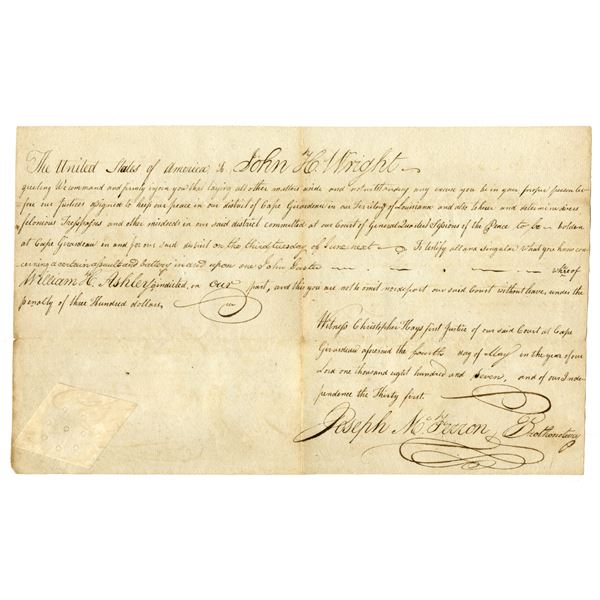 The United States of America to John H. Wright
greeting We command and firmly injoin you that laying all other matters aside and notwithstanding any excuse you be in your proper person be
fore our Justices assigned to keep our peace in our district of Cape Girardeau in our Territory of Louisiana and also to hear and determine divers
felonious Tresspasses and other misdeeds in our said district committed at our Court of General Quarter Sessions of the Peace to be holden
at Cape Girardeau in and for our said district on the third tuesday of June next To testify all and singular what you know con
cerning a certain assault and battery in and upon one John whereof
William H. Ashley is indicted, on our part, and this you are not to omit nor depart our said Court without leave, under the
penalty of three Hundred dollars.
Witness Christopher Hays first Justice of our said Court at Cape
Girardeau aforesaid the fourth day of May in the year of our
Lord one thousand eight hundred and seven, and of our Inde-
pendence the Thirty first.
Joseph McFerron Prothonotary